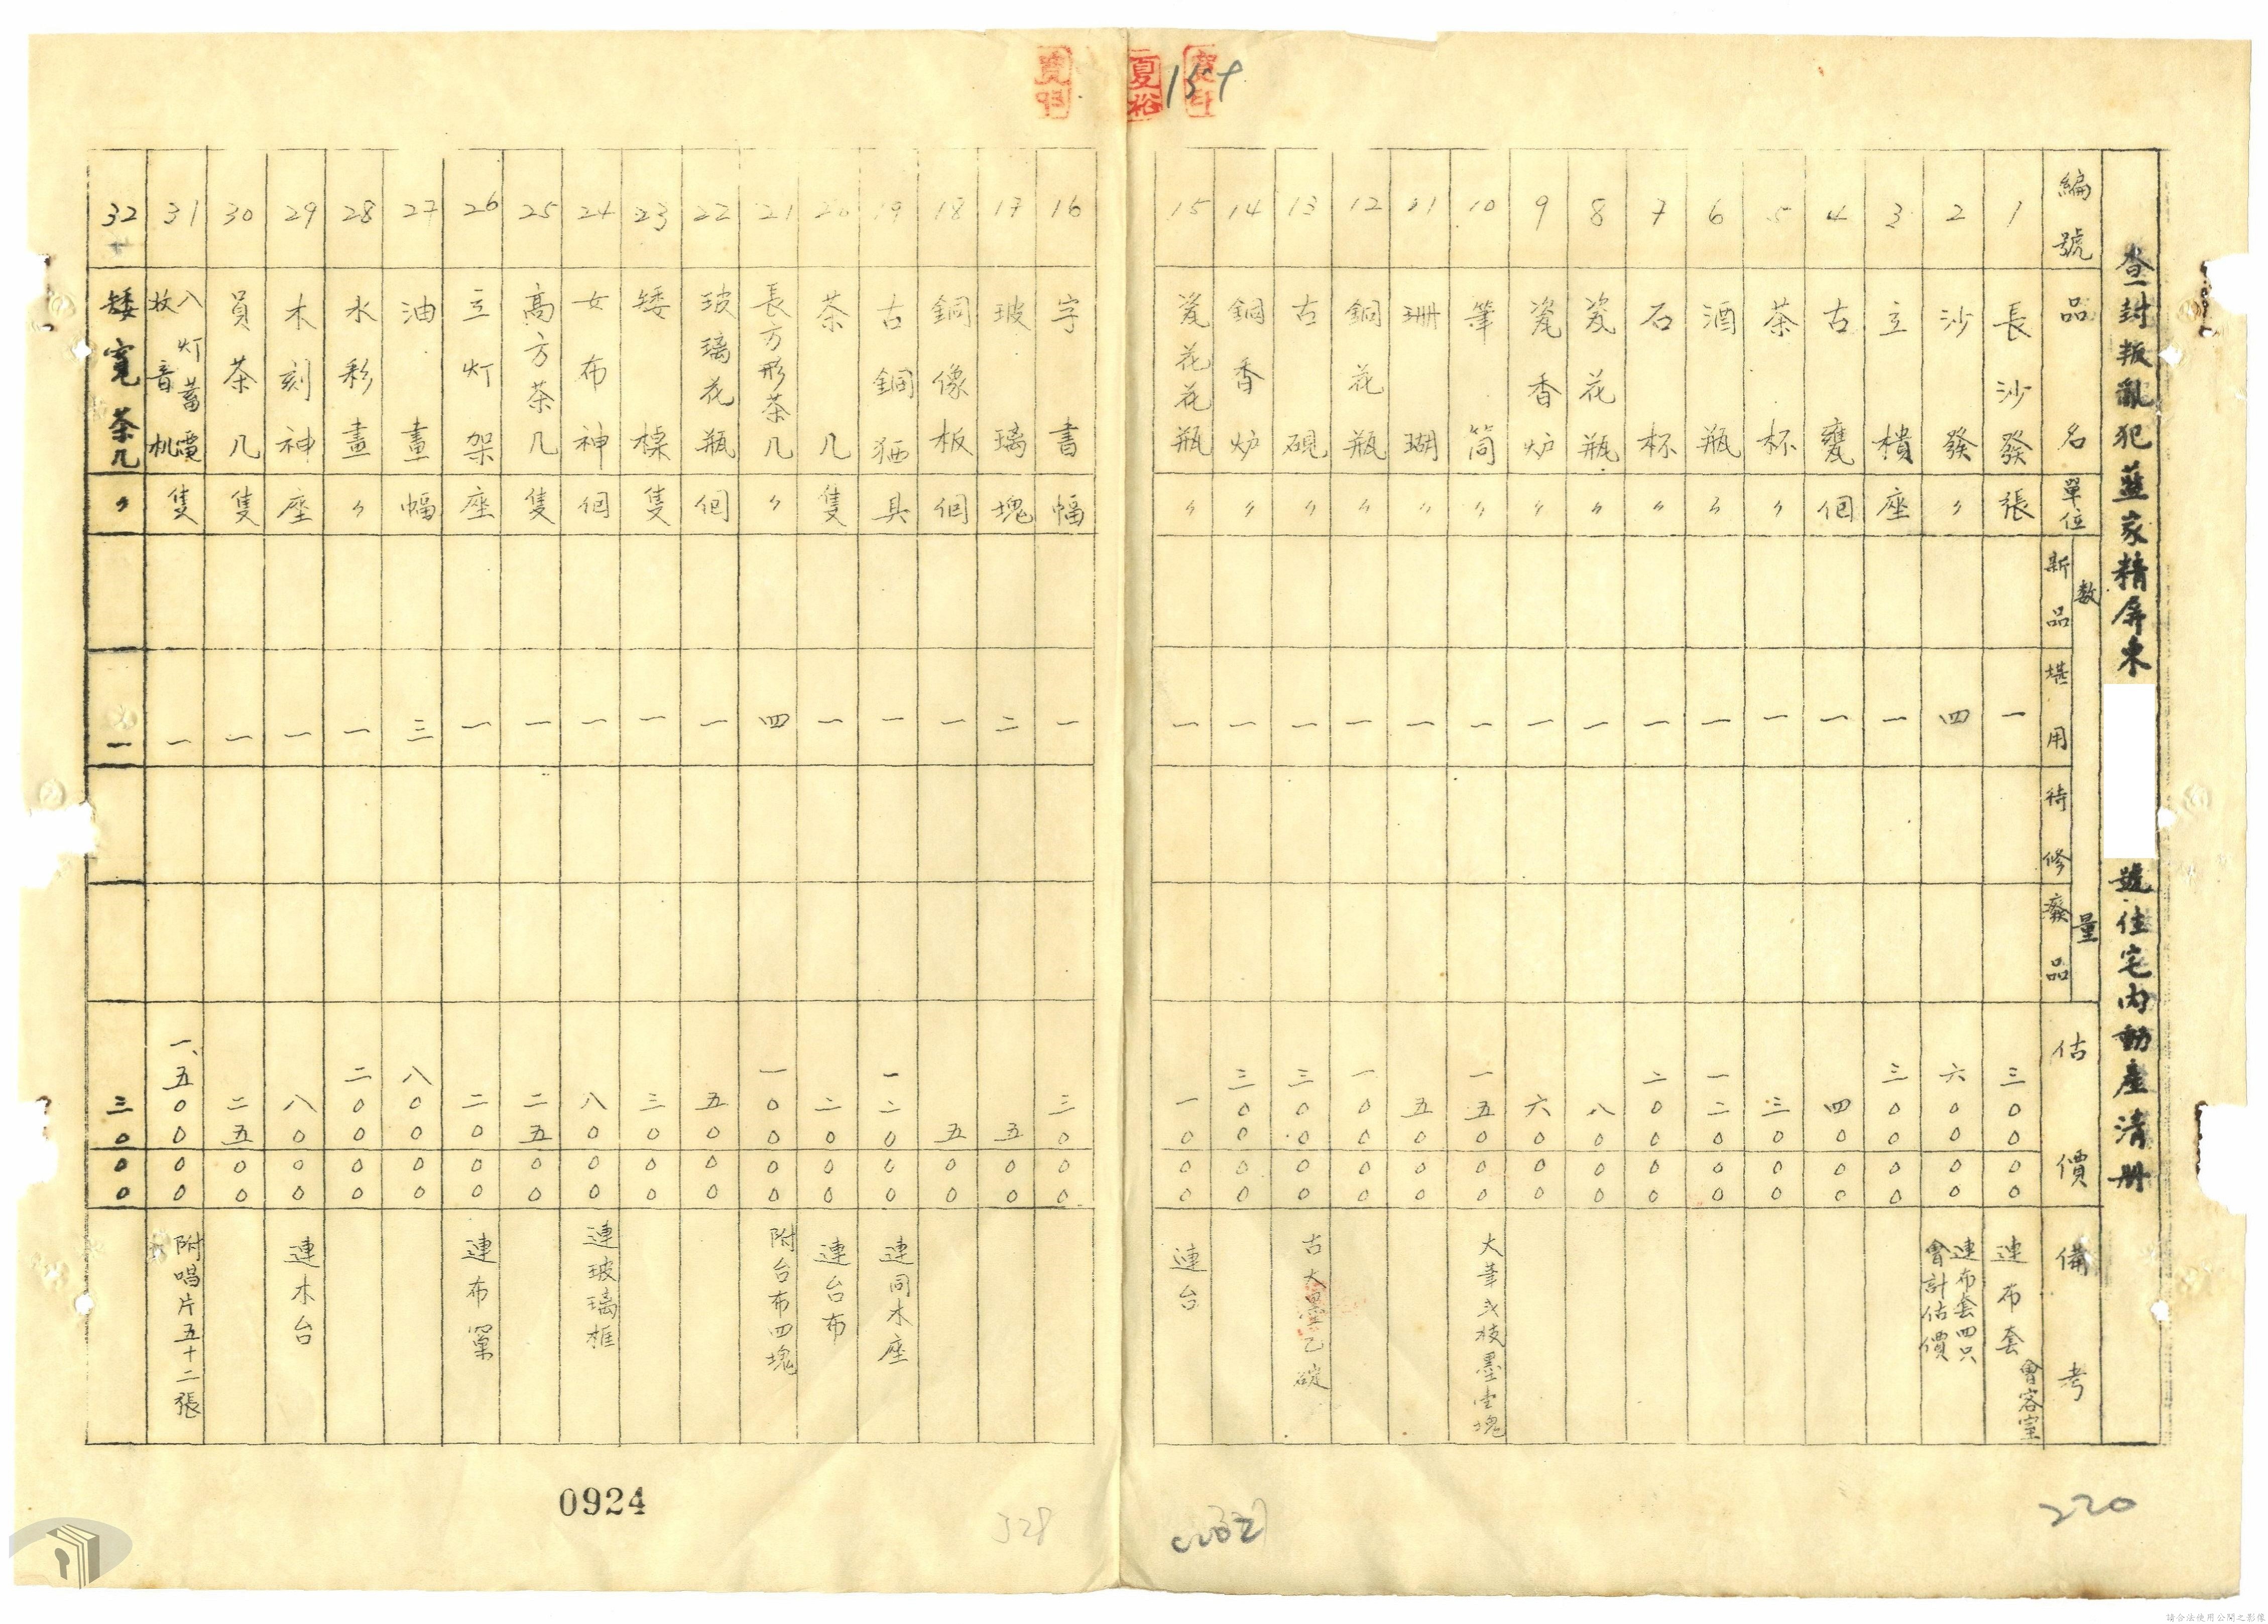 查封叛亂犯藍家精屏東 號住宅內動產清冊
編號 品名 單位 數量 新品 堪用 待修 廢品 估價 備考
1 長沙發 張 一 三〇〇〇〇 連布套 會客室
2 沙發 〃 四 六〇〇〇〇 連布套四只會計估價
3 立櫃 座 一 三〇〇〇〇
4 古甕 個 一 四〇〇〇
5 茶杯 〃 一 三〇〇〇
6 酒瓶 〃 一 一二〇〇〇
7 石杯 〃 一 二〇〇〇〇
8 瓷花瓶 〃 一 八〇〇〇
9 瓷香炉 〃 一 六〇〇〇
10 筆筒 〃 一 一五〇〇〇 大筆弍枝墨壹塊
11 珊瑚 〃 一 五〇〇〇
12 銅花瓶 〃 一 一〇〇〇〇
13 古硯 〃 一 三〇〇〇〇 古大墨乙碇
14 銅香炉 〃 一 三〇〇〇〇
15 瓷花花瓶 〃 一 一〇〇〇 連台
16 字書 幅 一 三〇〇〇
17 玻璃 塊 二 五〇〇
18 銅像板 個 一 五〇〇
19 古銅 具 一 一二〇〇〇 連同木座
20 茶几 隻 一 二〇〇〇 連台布
21 長方形茶几 〃 四 一〇〇〇〇 附台布四塊
22 玻璃花瓶 個 一 五〇〇〇
23 矮櫈 隻 一 三〇〇〇
24 女布神 個 一 八〇〇〇 連玻璃框
25 高方茶几 隻 一 二五〇〇
26 立灯架 座 一 二〇〇〇 連布罩
27 油畫 幅 三 八〇〇〇〇
28 水彩畫 〃 一 二〇〇〇〇
29 木刻神 座 一 八〇〇〇 連木台
30 員茶几 隻 一 二五〇〇
31 八灯蓄電收音机 隻 一 一、五〇〇〇〇 附唱片五十二張
32 矮寬茶几 〃 一 三〇〇〇
夏裕
159
0924
328
220
請合法使用公開之影像